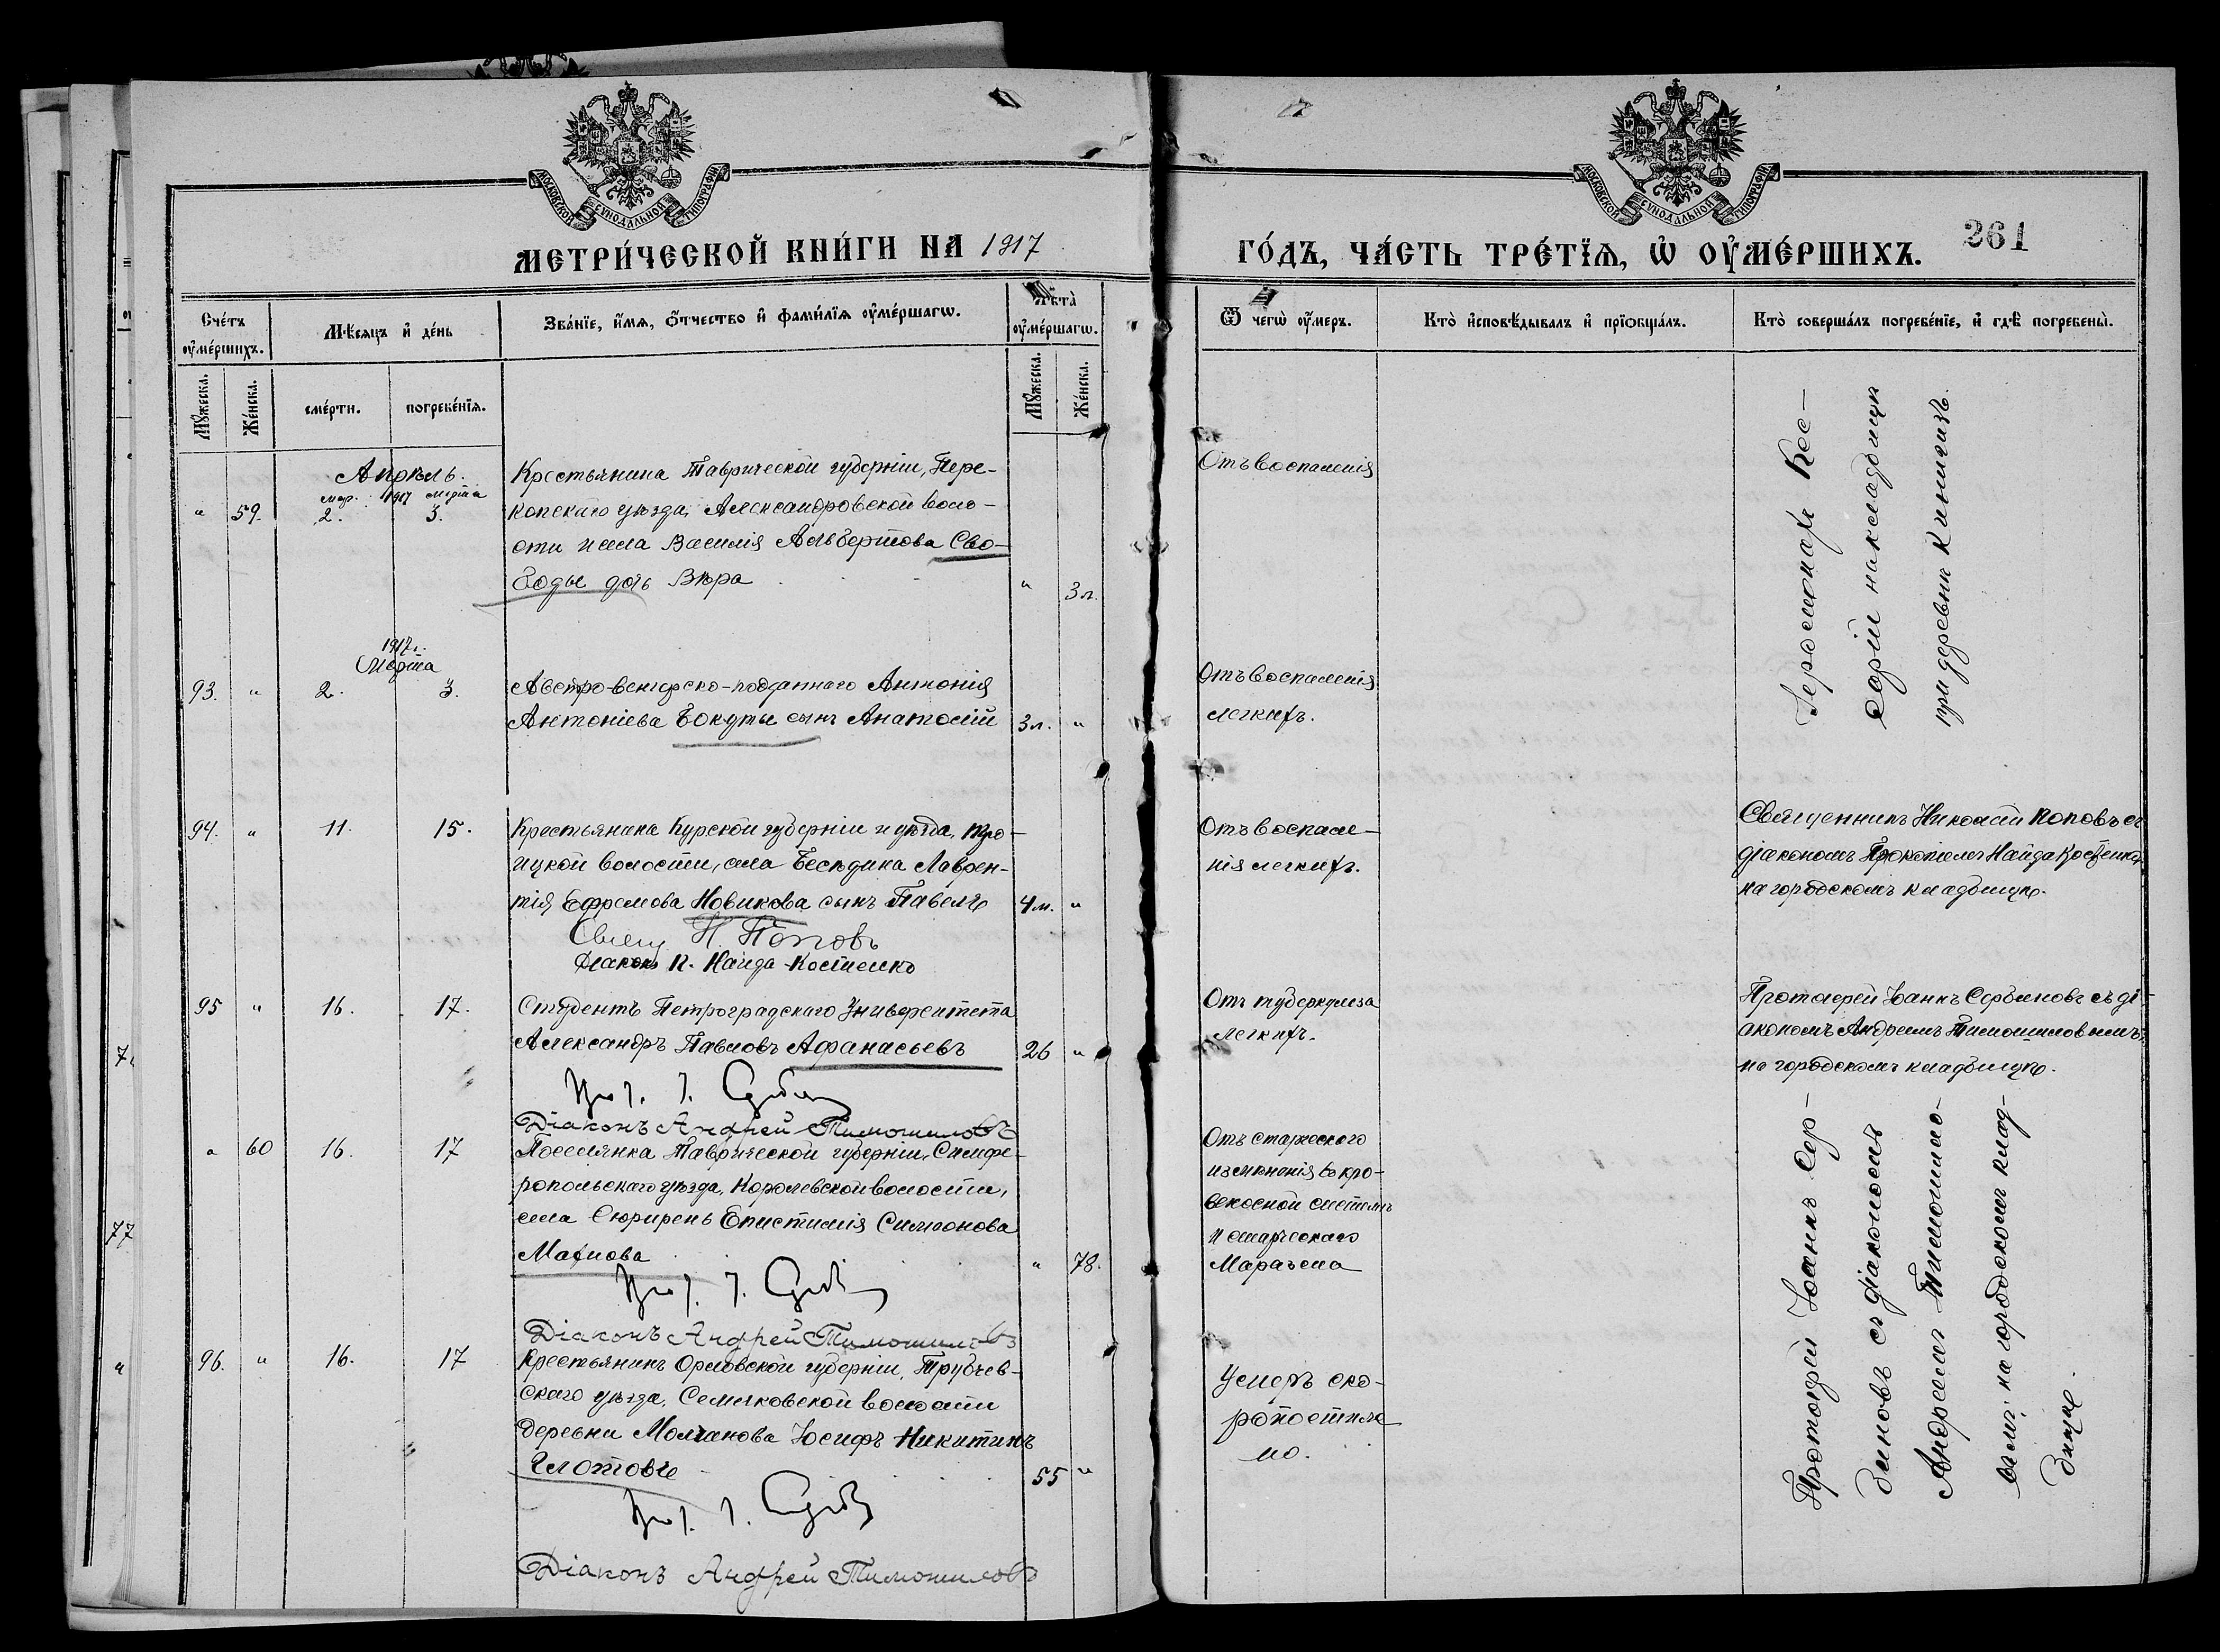 МОСКОВСКОЙ СѴНОДАЛЬНОЙ ТИПОГРАФІИ
МОСКОВСКОЙ СѴНОДАЛЬНОЙ ТИПОГРАФІИ
МЕТРИ́ЧЕСКОЙ КНИ́ГИ НА 1917
ГО́ДЪ, ЧА́СТЬ ТРЕ́ТЇѦ, Ѡ҆ ОУ҆МЕ́РШИХЪ.
261
Сче́тъ оу҆ме́ршихъ.
Мѣ́сѧцъ и҆ де́нь
Зва́нїе, и҆́мѧ, ѻ҆́тчество и҆ фами́лїѧ оу҆ме́ршагѡ.
Лѣ̑та̀ оу҆ме́ршагѡ.
Ѿ чегѡ̀ оу҆́меръ.
Кто̀ и҆сповѣ́дывалъ и҆ прїѻбща́лъ.
Кто̀ соверша́лъ погребе́нїе, и҆ гдѣ̀ погребены̀.
Мꙋ́жеска.
Же́нска.
сме́рти.
погребе́нїѧ.
Мꙋ́жеска.
Же́нска.
Апрѣль.
1917 марта
" 59. 2. 3.
Крестьянина Таврической губерніи, Пере-
копскаго уѣзда, Александровской воло-
сти и села Василія Альбертова Сво-
боды дочь Вѣра " 3 л.
Отъ воспаленія
Іеромонахъ Кес-
сарій на кладбищѣ
при деревнѣ Кишчигизъ.
1917 г.
Марта
93. " 2. 3.
Австро-венгерско-подданнаго Антонія
Антоніева Бокуты сынъ Анатолій 3 л. "
Отъ воспаленія
легкихъ.
94. " 11. 15.
Крестьянина Курской губерніи и уѣзда, Тро-
ицкой волости, села Бесѣдина Лаврен-
тія Ефремова Новикова сынъ Павелъ 4 м. "
Свящ. Н. Поповъ
Діаконъ П. Найда-Костенко
Отъ воспале-
нія легкихъ.
Священникъ Николай Поповъ съ
діакономъ Прокопіемъ Найда Костенко
на городскомъ кладбищѣ.
95 " 16. 17.
Студентъ Петроградскаго Университета
Александръ Павловъ Афанасьевъ 26 "
Прот. І. Сербиновъ
Діаконъ Андрей Тимошиловъ
Отъ туберкулеза
легкихъ.
Протоіерей Іоаннъ Сербиновъ съ ді-
акономъ Андреемъ Тимошиловымъ
на городскомъ кладбищѣ.
" 60 16. 17
Поселянка Таврической губерніи, Симфе-
ропольскаго уѣзда, Королевской волости,
села Сюрирень Епистимія Симеонова
Махнова " 78.
Прот. І. Сербиновъ
Діаконъ Андрей Тимошиловъ
Отъ старческаго
измѣненія въ кро-
веносной системѣ
и старческаго
Маразма
Протоіерей Іоаннъ Сер-
биновъ съ діакономъ
Андреемъ Тимошило-
вымъ на городскомъ клад-
бищѣ.
96. " 16. 17
Крестьянинъ Орловской губерніи, Трубчев-
скаго уѣзда, Семячковской волости
деревни Молчанова Іосифъ Никитинъ
Глотовъ 55 "
Прот. І. Сербиновъ
Діаконъ Андрей Тимошиловъ
Умеръ ско-
ропостиж-
но.
77